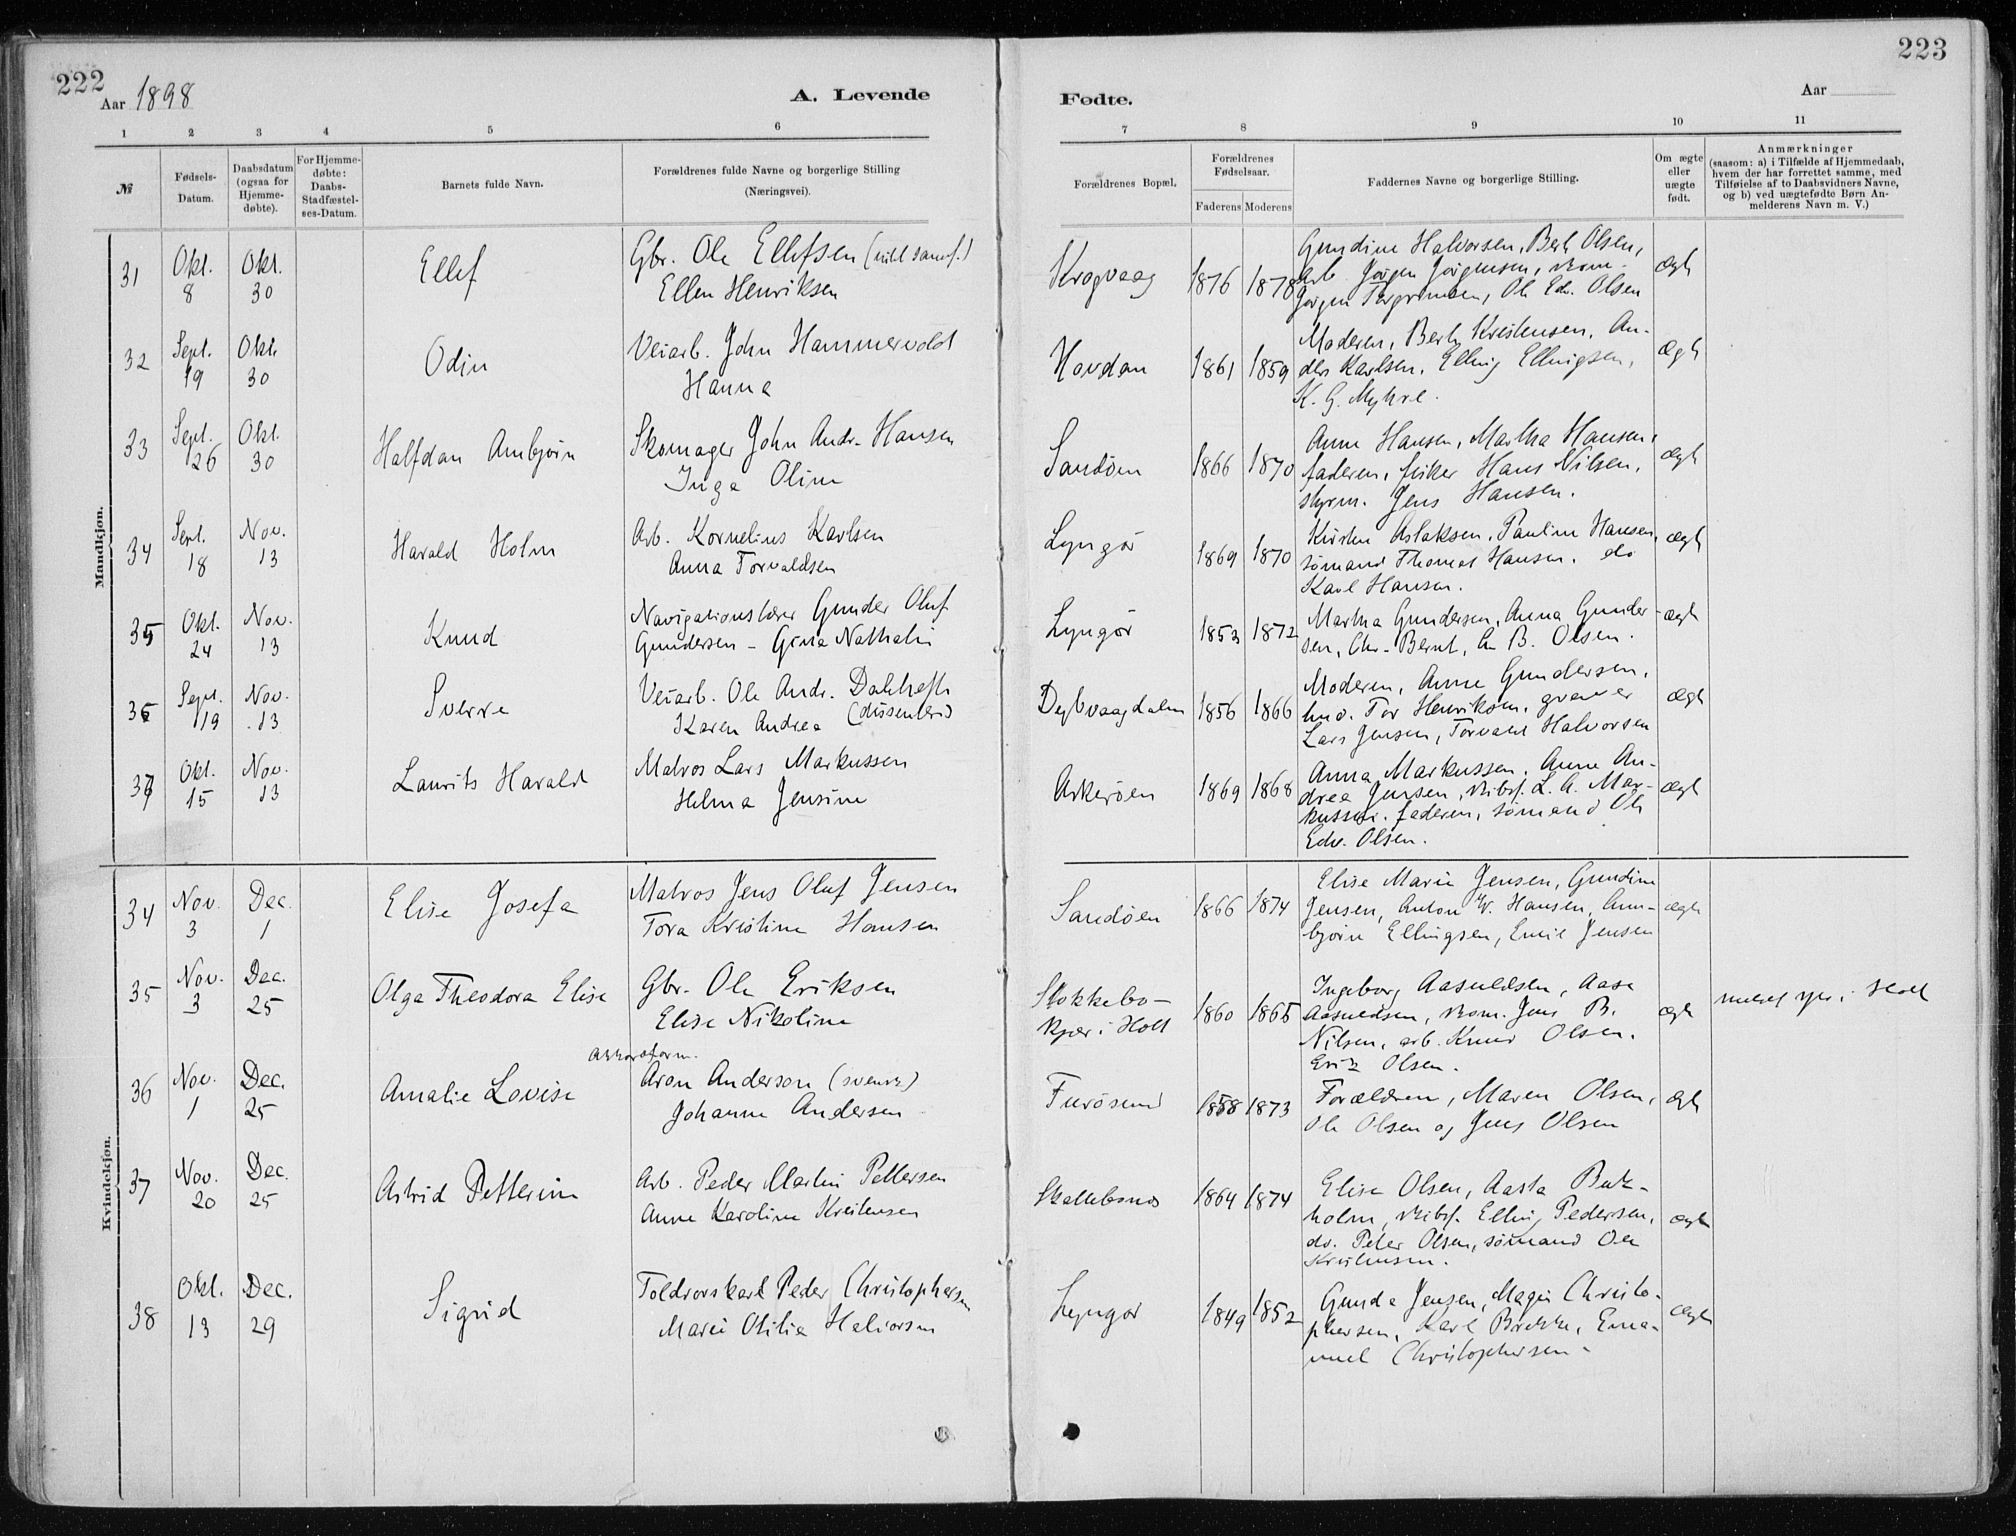 222
Aar 1898
A. Levende
1 2 3 4 5 6
№
Fødsels-
Datum.
Daabsdatum
(ogsaa for
Hjemme-
døbte).
For Hjemme-
døbte:
Daabs-
Stadfæstel-
ses-Datum.
Barnets fulde Navn.
Forældrenes fulde Navne og borgerlige Stilling
(Næringsvei).
Mandkjøn.
31 Okt. 8 Okt. 30 Ellef
Gbr. Ole Ellefsen
Ellen Henriksen
32 Sept. 19 Okt. 30 Odin
Veiarb. John Hammervold
Hanna
33 Sept. 26 Okt. 30 Halfdan Arnbjørn
Skomager John Andr. Hansen
Inga Oline
34 Sept. 18 Nov. 13 Harald Holm
Arb. Kornelius Karlsen
Anna Torvaldsen
35 Okt. 24 Nov. 13 Knud
Navigationslærer Gunder Oluf
Gundersen - Gina Nathalie
36 Sept. 19 Nov. 13 Sverre
Veiarb. Ole Andr. Dalehefte
Karen Andrea (dissentere)
37 Okt. 15 Nov. 13 Laurits Harald
Matros Lars Markussen
Helma Jensine
Kvindekjøn.
34 Nov. 3 Dec. 1 Elise Josefa
Matros Jens Oluf Jensen
Tora Kristine Hansen
35 Nov. 3 Dec. 25 Olga Theodora Elise
Gbr. Ole Eriksen
Elise Nikoline
36 Nov. 1 Dec. 25 Amalie Lovise
Aron Anderson (svensk)
Johanne Andersen
37 Nov. 20 Dec. 25 Astrid Petterine
Arb. Peder Martin Pettersen
Anne Karoline Kristensen
38 Okt. 13 Dec. 29 Sigrid
Toldrorskarl Peder Christophersen
Marie Otilie Halvorsen
223
Fødte.
Aar
7 8 9 10 11
Forældrenes Bopæl.
Forældrenes
Fødselsaar.
Faderens Moderens
Faddernes Navne og borgerlige Stilling.
Om ægte
eller
uægte
født.
Anmærkninger
(saasom: a) i Tilfælde af Hjemmedaab,
hvem der har forrettet samme, med
Tilføielse af to Daabsvidners Navne,
og b) ved uægtefødte Børn An-
melderens Navn m. V.)
Krogvaag 1876 1878 ægte
Gundine Halvorsen, Berte Olsen,
arb. Jørgen Jørgensen, skom.
Jørgen Torgrimsen, Ole Edv. Olsen
Hovdan 1861 1859 ægte
Moderen, Berte Kristensen, An-
ders Karlsen, Elling Ellingsen,
K. G. Myhre.
Sandøen 1866 1870 ægte
Anne Hansen, Martha Hansen,
faderen, fisker Hans Nilsen,
styrm. Jens Hansen.
Lyngør 1869 1870 ægte
Kirsten Aslaksen, Pauline Hansen,
sømand Thomas Hansen, do
Karl Hansen.
Lyngør 1853 1872 ægte
Martha Gundersen, Anna Gunder-
sen, Chr. Bernt, B. Olsen.
Dybvaagdalen 1856 1866 ægte
Moderen, Anne Gundersen,
Tor Henriksen, graver
Lars Jensen, Torvald Halvorsen
Askerøen 1869 1868 ægte
Anna Markussen, Anne An-
drea Jensen, skibsf. L. A. Mar-
kussen, faderen, sømand Ole
Edv. Olsen.
Sandøen 1866 1874 ægte
Elise Marie Jensen, Gundine
Jensen, Anton W. Hansen, Arn-
bjørn Ellingsen, Emil Jensen
Stokkebo-
kjær i Holt 1860 1865 ægte
Ingeborg Aasuldsen, Aase
Aasuldsen, skom. Jens B.
Nilsen, arb. Knud Olsen.
Erik Olsen.
Furøsund 1858 1873 ægte
Forældrene, Maren Olsen,
Ole Olsen og Jens Olsen
Skallebonæs 1864 1874 ægte
Elise Olsen, Aasta Buk-
holm, skibsf. Elling Pedersen,
do. Peter Olsen, sømand Ole
Kristensen.
Lyngør 1849 1852 ægte
Gunda Jensen, Magin Christo-
phersen, Karl Brekke, Ema-
nuel Christophersen.